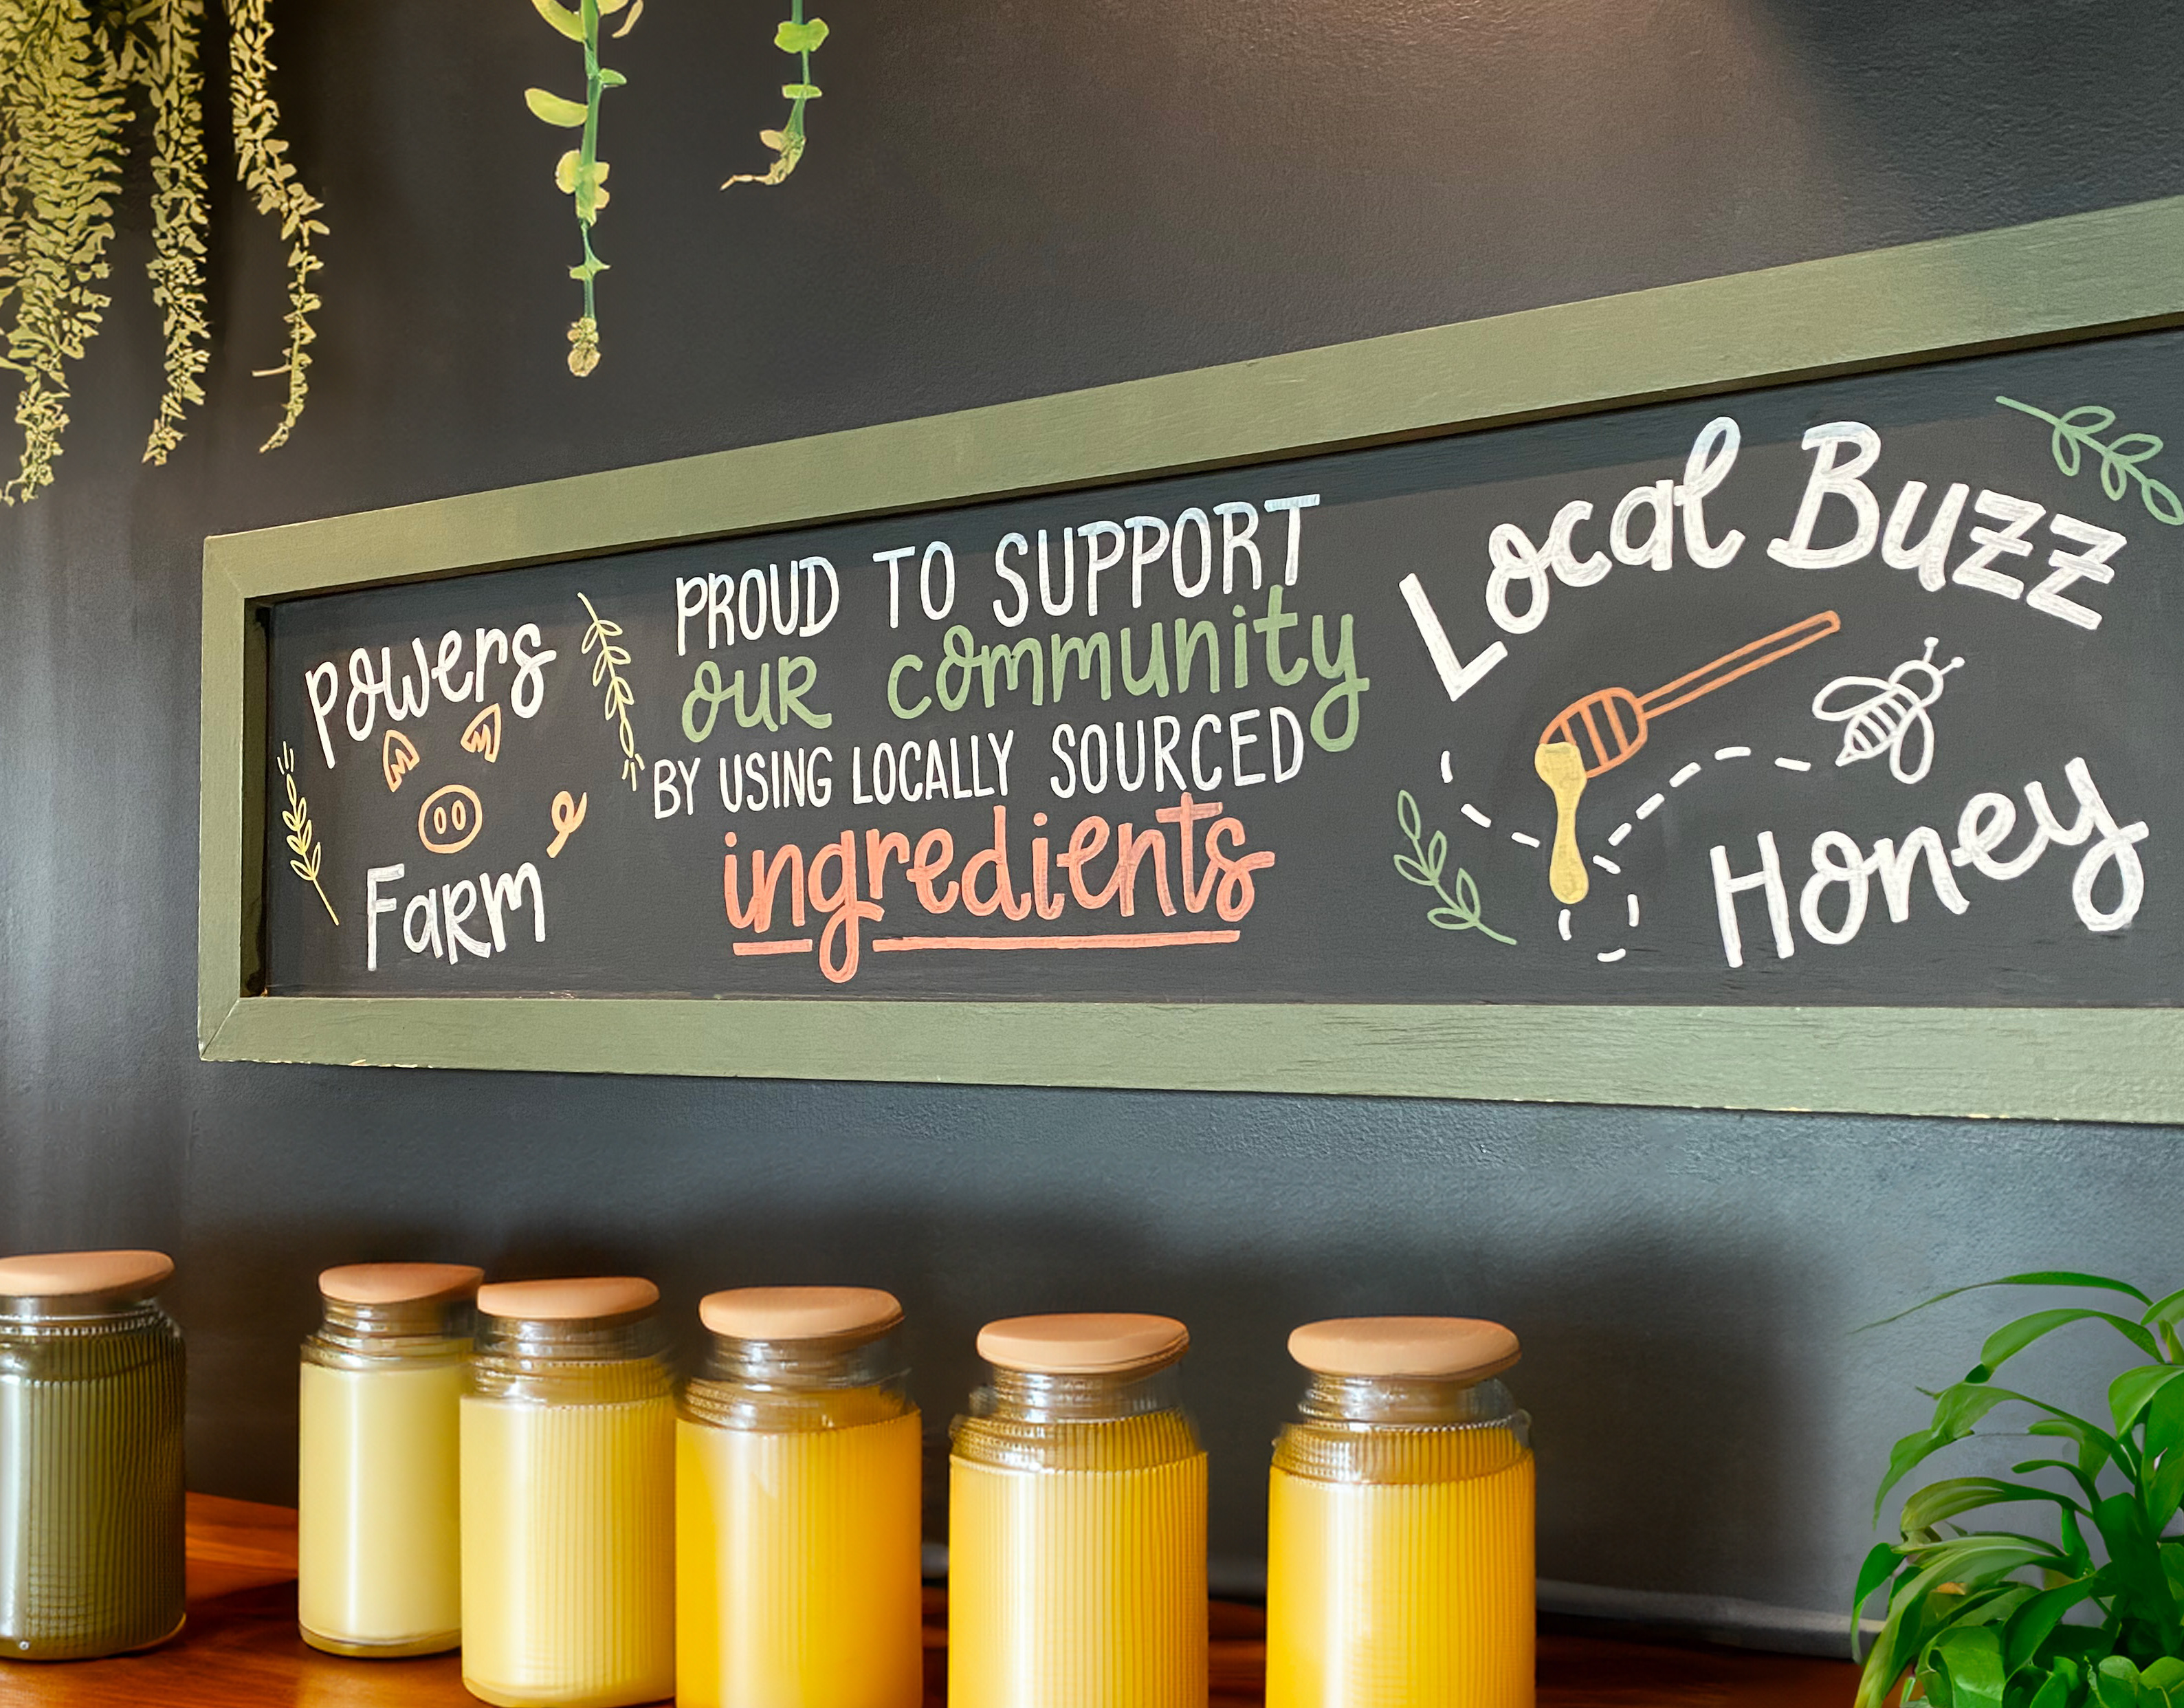 Powers
Farm
PROUD TO SUPPORT
our community
BY USING LOCALLY SOURCED
ingredients
Local Buzz
Honey